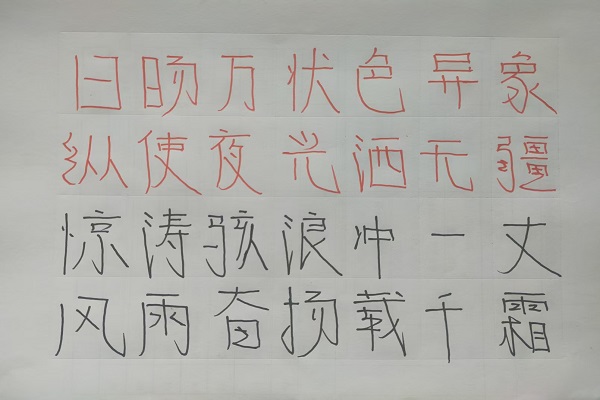 日旸万状色异象
纵使夜光洒无疆
惊涛骇浪冲一丈
风雨奋扬载千霜